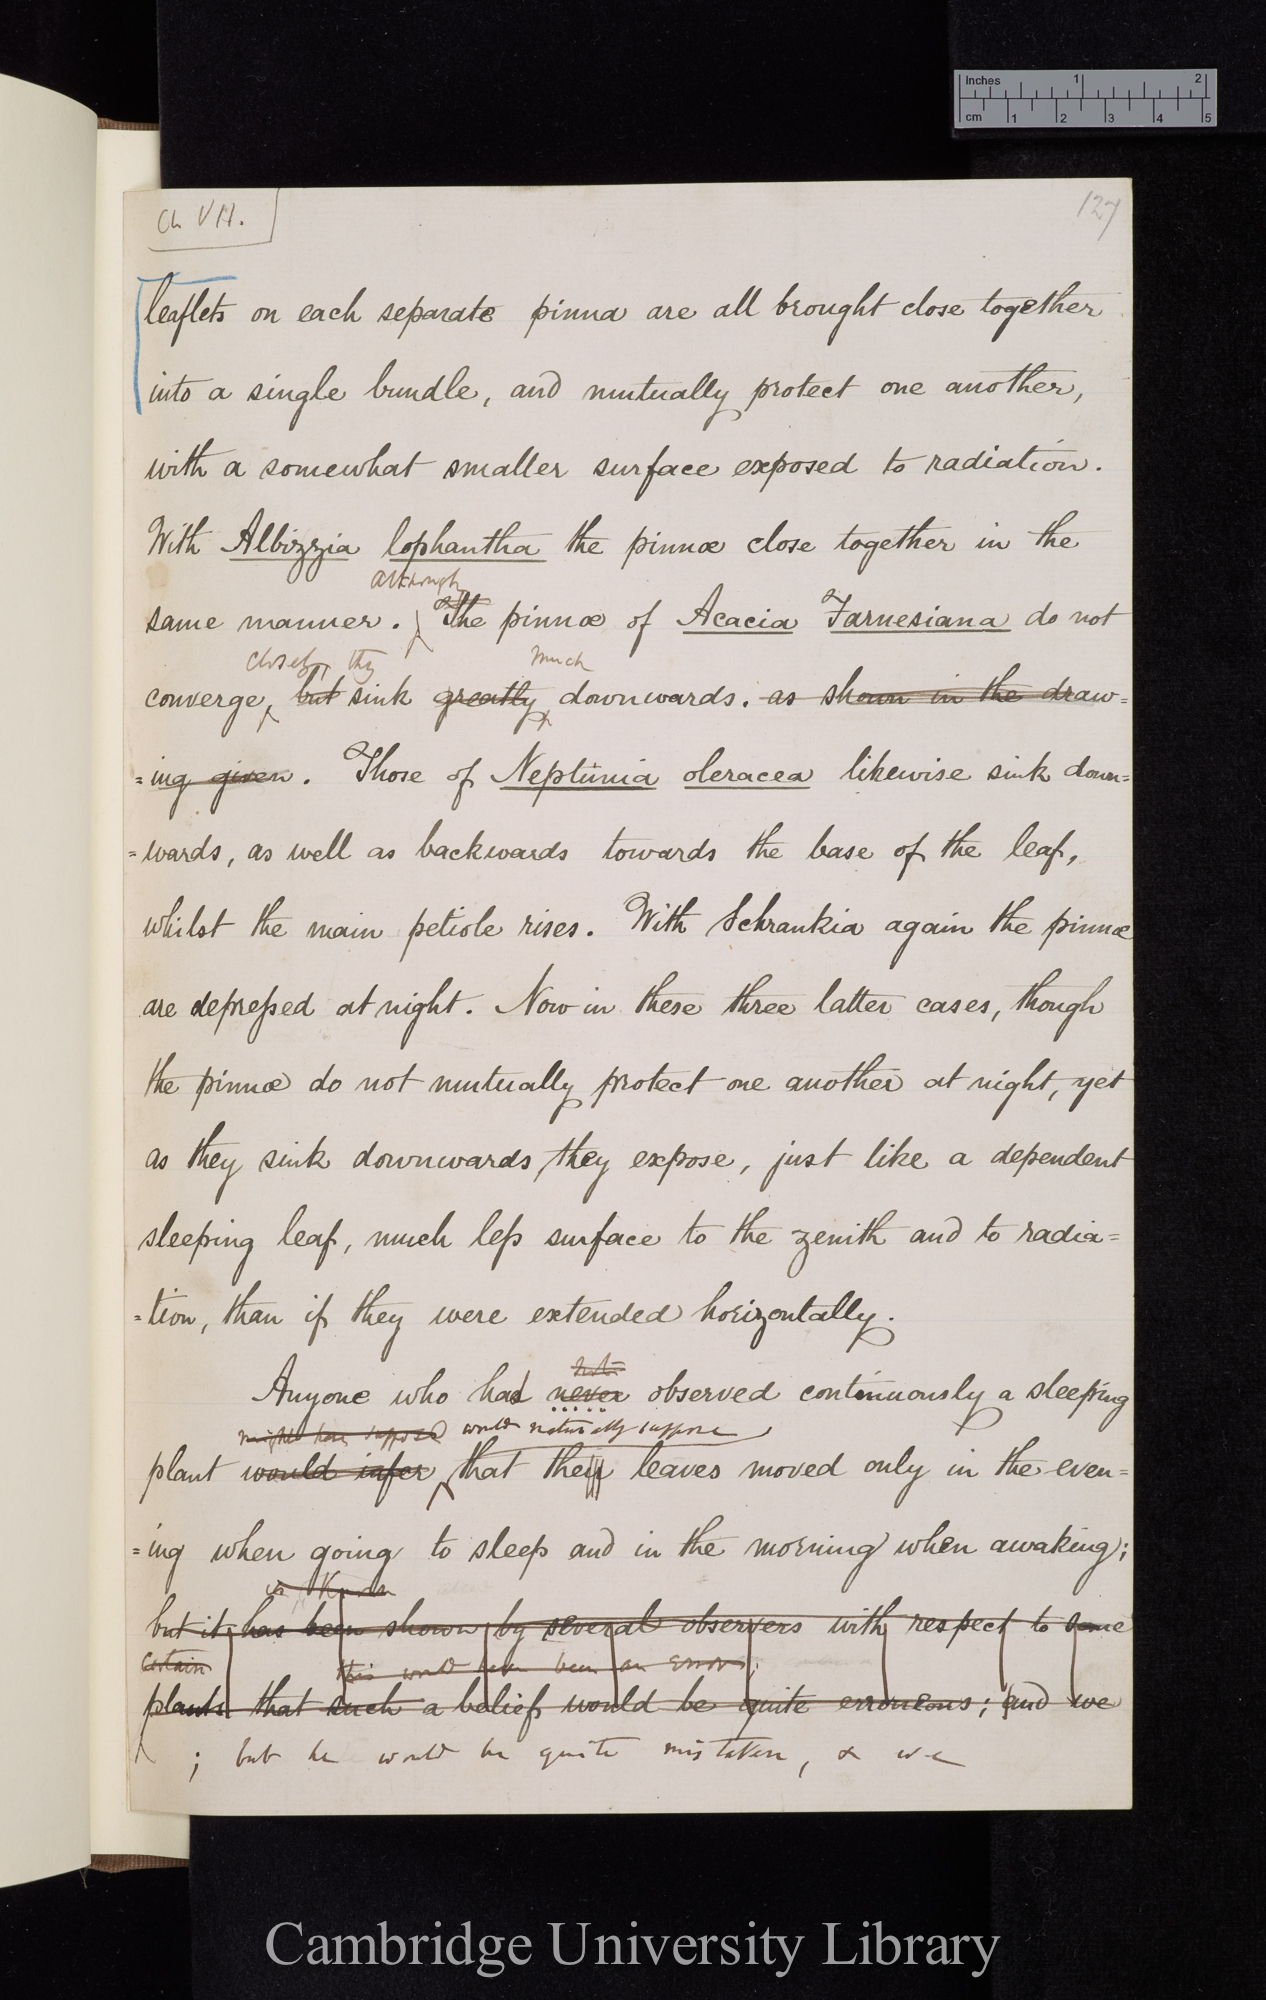 Inches 1 2
cm 1 2 3 4 5
Ch VII.
127
leaflets on each separate pinna are all brought close together
into a single bundle, and mutually protect one another,
with a somewhat smaller surface exposed to radiation.
With Albizzia lophantha the pinnæ close together in the
although
same manner. The pinnæ of Acacia Farnesiana do not
closely, they much
converge, but sink greatly downwards. as shown in the draw=
=ing given. Those of Neptunia oleracea likewise sink down=
=wards, as well as backwards towards the base of the leaf,
whilst the main petiole rises. With Schrankia again the pinnæ
are depressed at night. Now in these three latter cases, though
the pinnæ do not mutually protect one another at night, yet
as they sink downwards, they expose, just like a dependent
sleeping leaf, much less surface to the zenith and to radia=
=tion, than if they were extended horizontally.
Anyone who had never observed continuously a sleeping
might have supposed would naturally suppose
plant would infer that the leaves moved only in the even=
=ing when going to sleep and in the morning when awaking;
but it has been shown by several observers with respect to some
certain this would have been an error;
plants that such a belief would be quite erroneous; and we
; but he would be quite mistaken, & we
Cambridge University Library